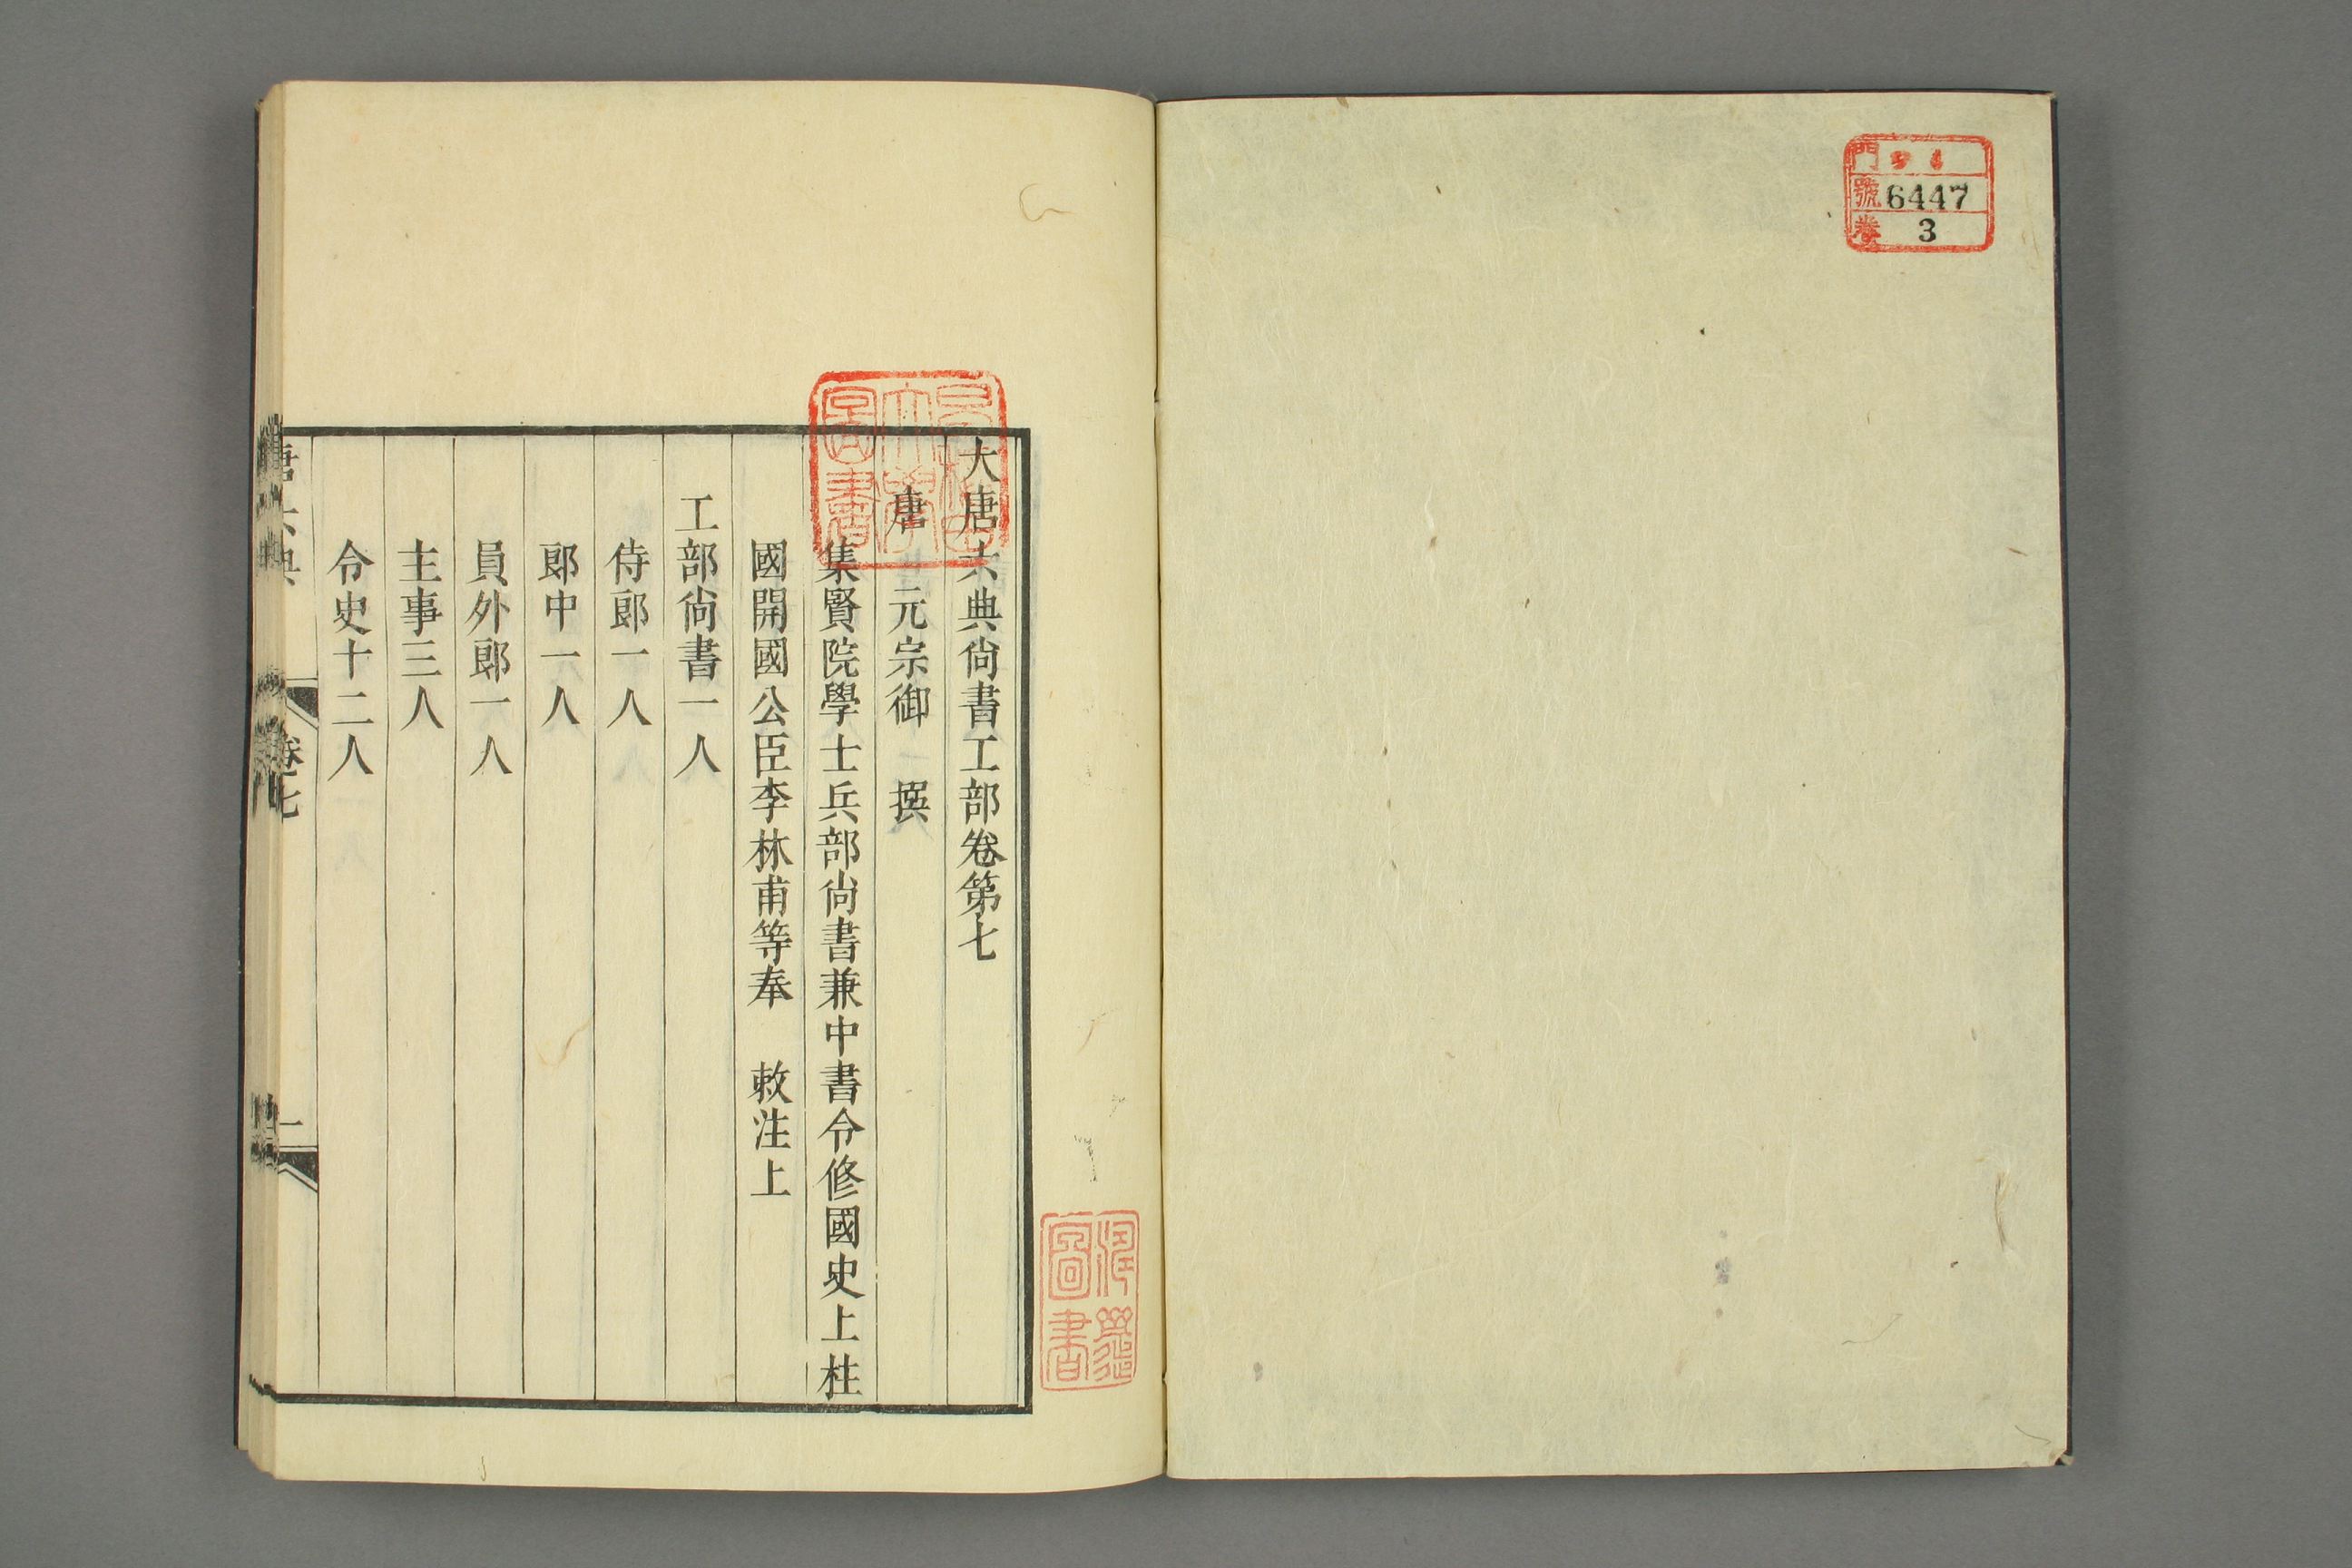 門
號 6447
卷 3
大唐六典尙書工部卷第七
唐 元宗御 撰
集賢院學士兵部尙書兼中書令修國史上柱
國開國公臣李林甫等奉 敕注上
工部尙書一人
侍郞一人
郞中一人
員外郞一人
主事三人
令史十二人
唐六典 卷七 一
早稻田大學圖書
圖書